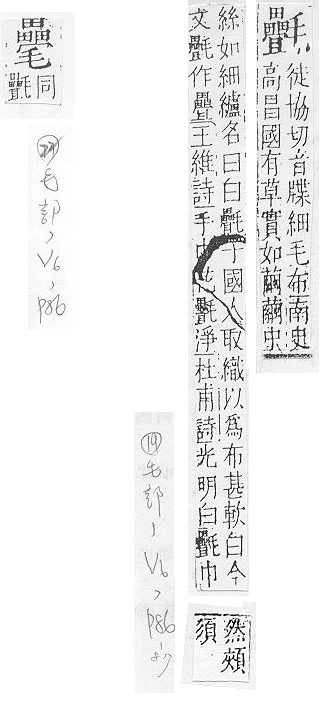 㲲
徒協切音牒細毛布南史
高昌國有草實如繭繭虫
絲如細纑名曰白㲲子國人取織以爲布甚軟白今
文㲲作疊王維詩手巾花㲲淨杜甫詩光明白㲲巾
然頰
須
⑲毛部、V6、P86
同
㲲
毛部、V6、P86